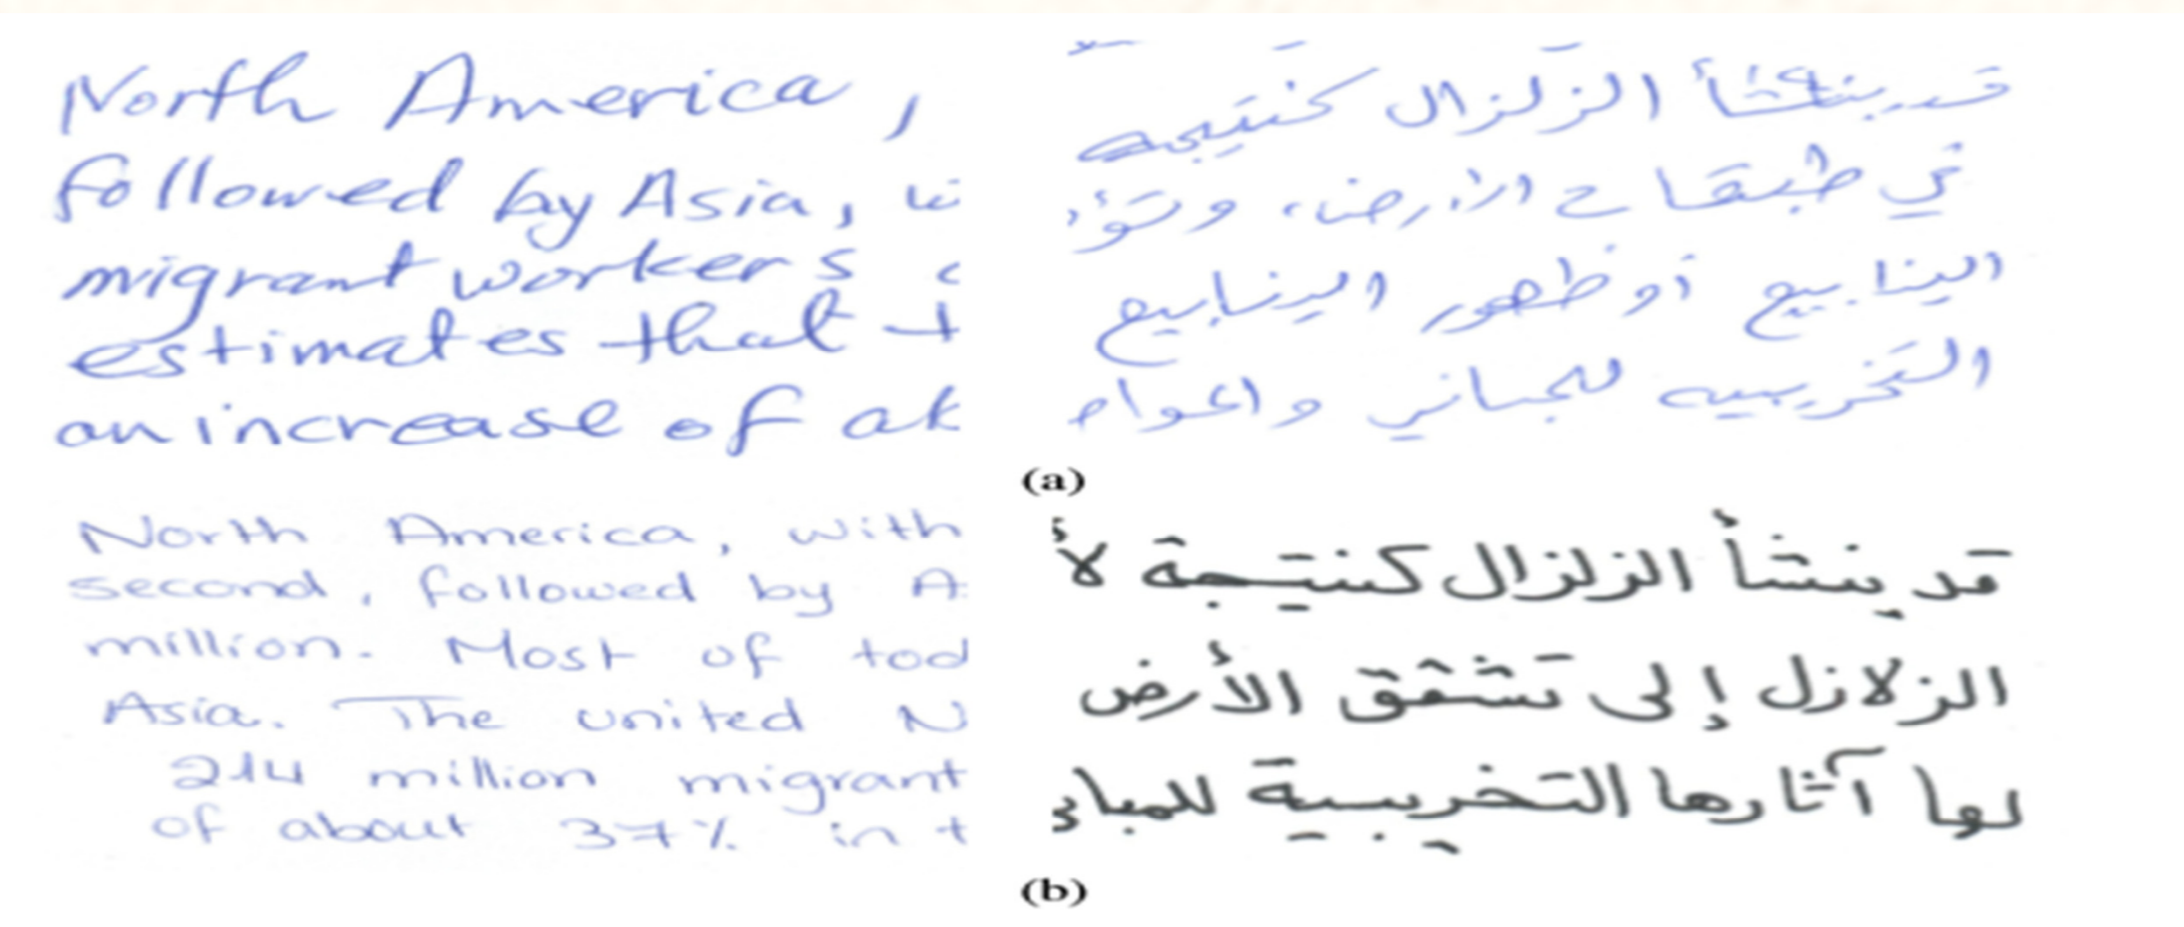 North America,
followed by Asia,
migrant workers
estimates that
an increase of
قد ينشأ الزلزال كنتيجه
في طبقات الارض، وتؤ
الينابيع أو ظهور الينابيع
التخريبيه للمباني
(a)
North America, with
second, followed by A
million. Most of tod
Asia. The united N
214 million migrant
of about 37% in t
قد ينشأ الزلزال كنتيجة لأ
الزلازل إلى تشقق الأرض
لها آثارها التخريبية للمبا
(b)